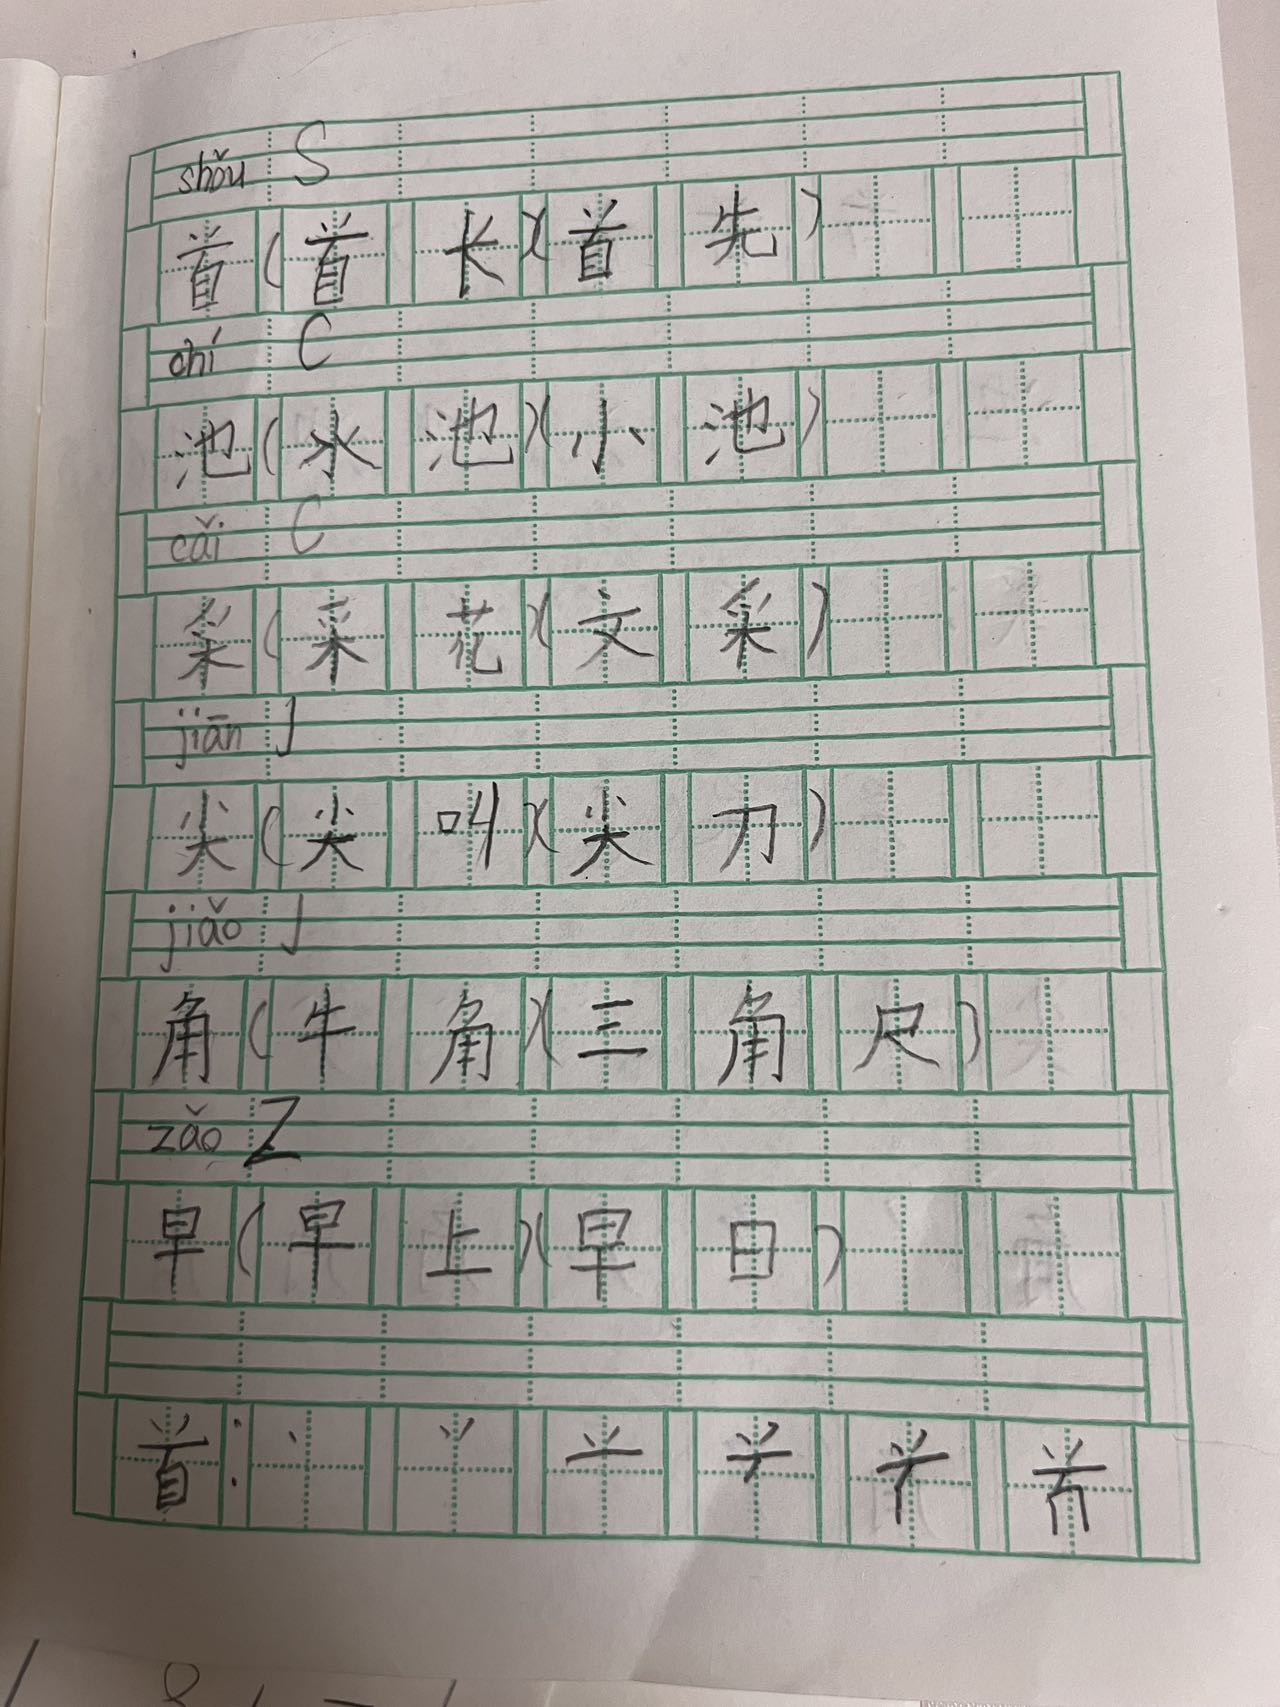 shǒu S
首(首长)(首先)
chí C
池(水池)(小池)
cǎi C
采(采花)(文采)
jiān J
尖(尖叫)(尖刀)
jiǎo J
角(牛角)(三角尺)
zǎo Z
早(早上)(早日)
首: